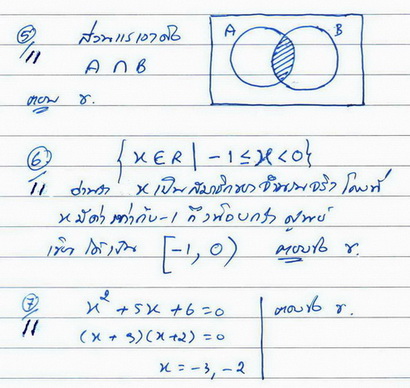 5) ส่วนแรเงาคือ A B
11 A ∩ B
ตอบ ข.
6) { x ∈ R | -1 ≤ x < 0 }
11 อ่านว่า x เป็นสมาชิกของจำนวนจริง โดยที่
x มีค่าเท่ากับ -1 ถึงน้อยกว่า ศูนย์
เขียนได้เป็น [-1, 0) ตอบข้อ ข.
7) x² + 5x + 6 = 0 ตอบข้อ ข.
11 (x + 3)(x + 2) = 0
x = -3, -2